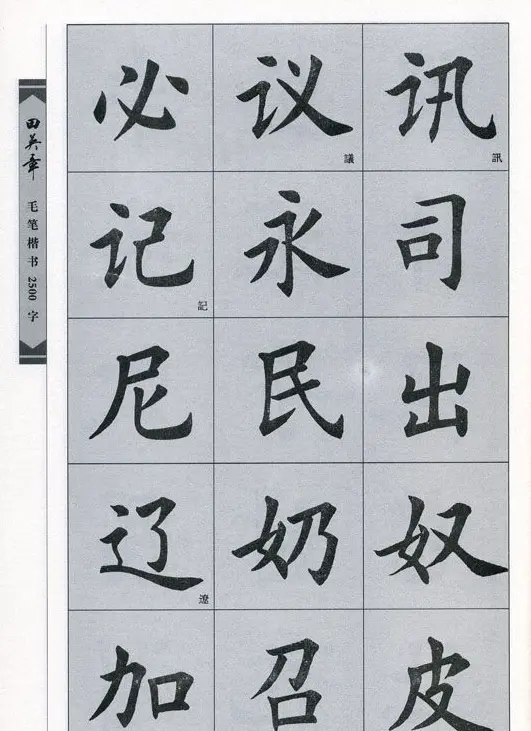 田英章
毛笔楷书2500字
必议議讯訊
记記永司
尼民出
辽遼奶奴
加召皮